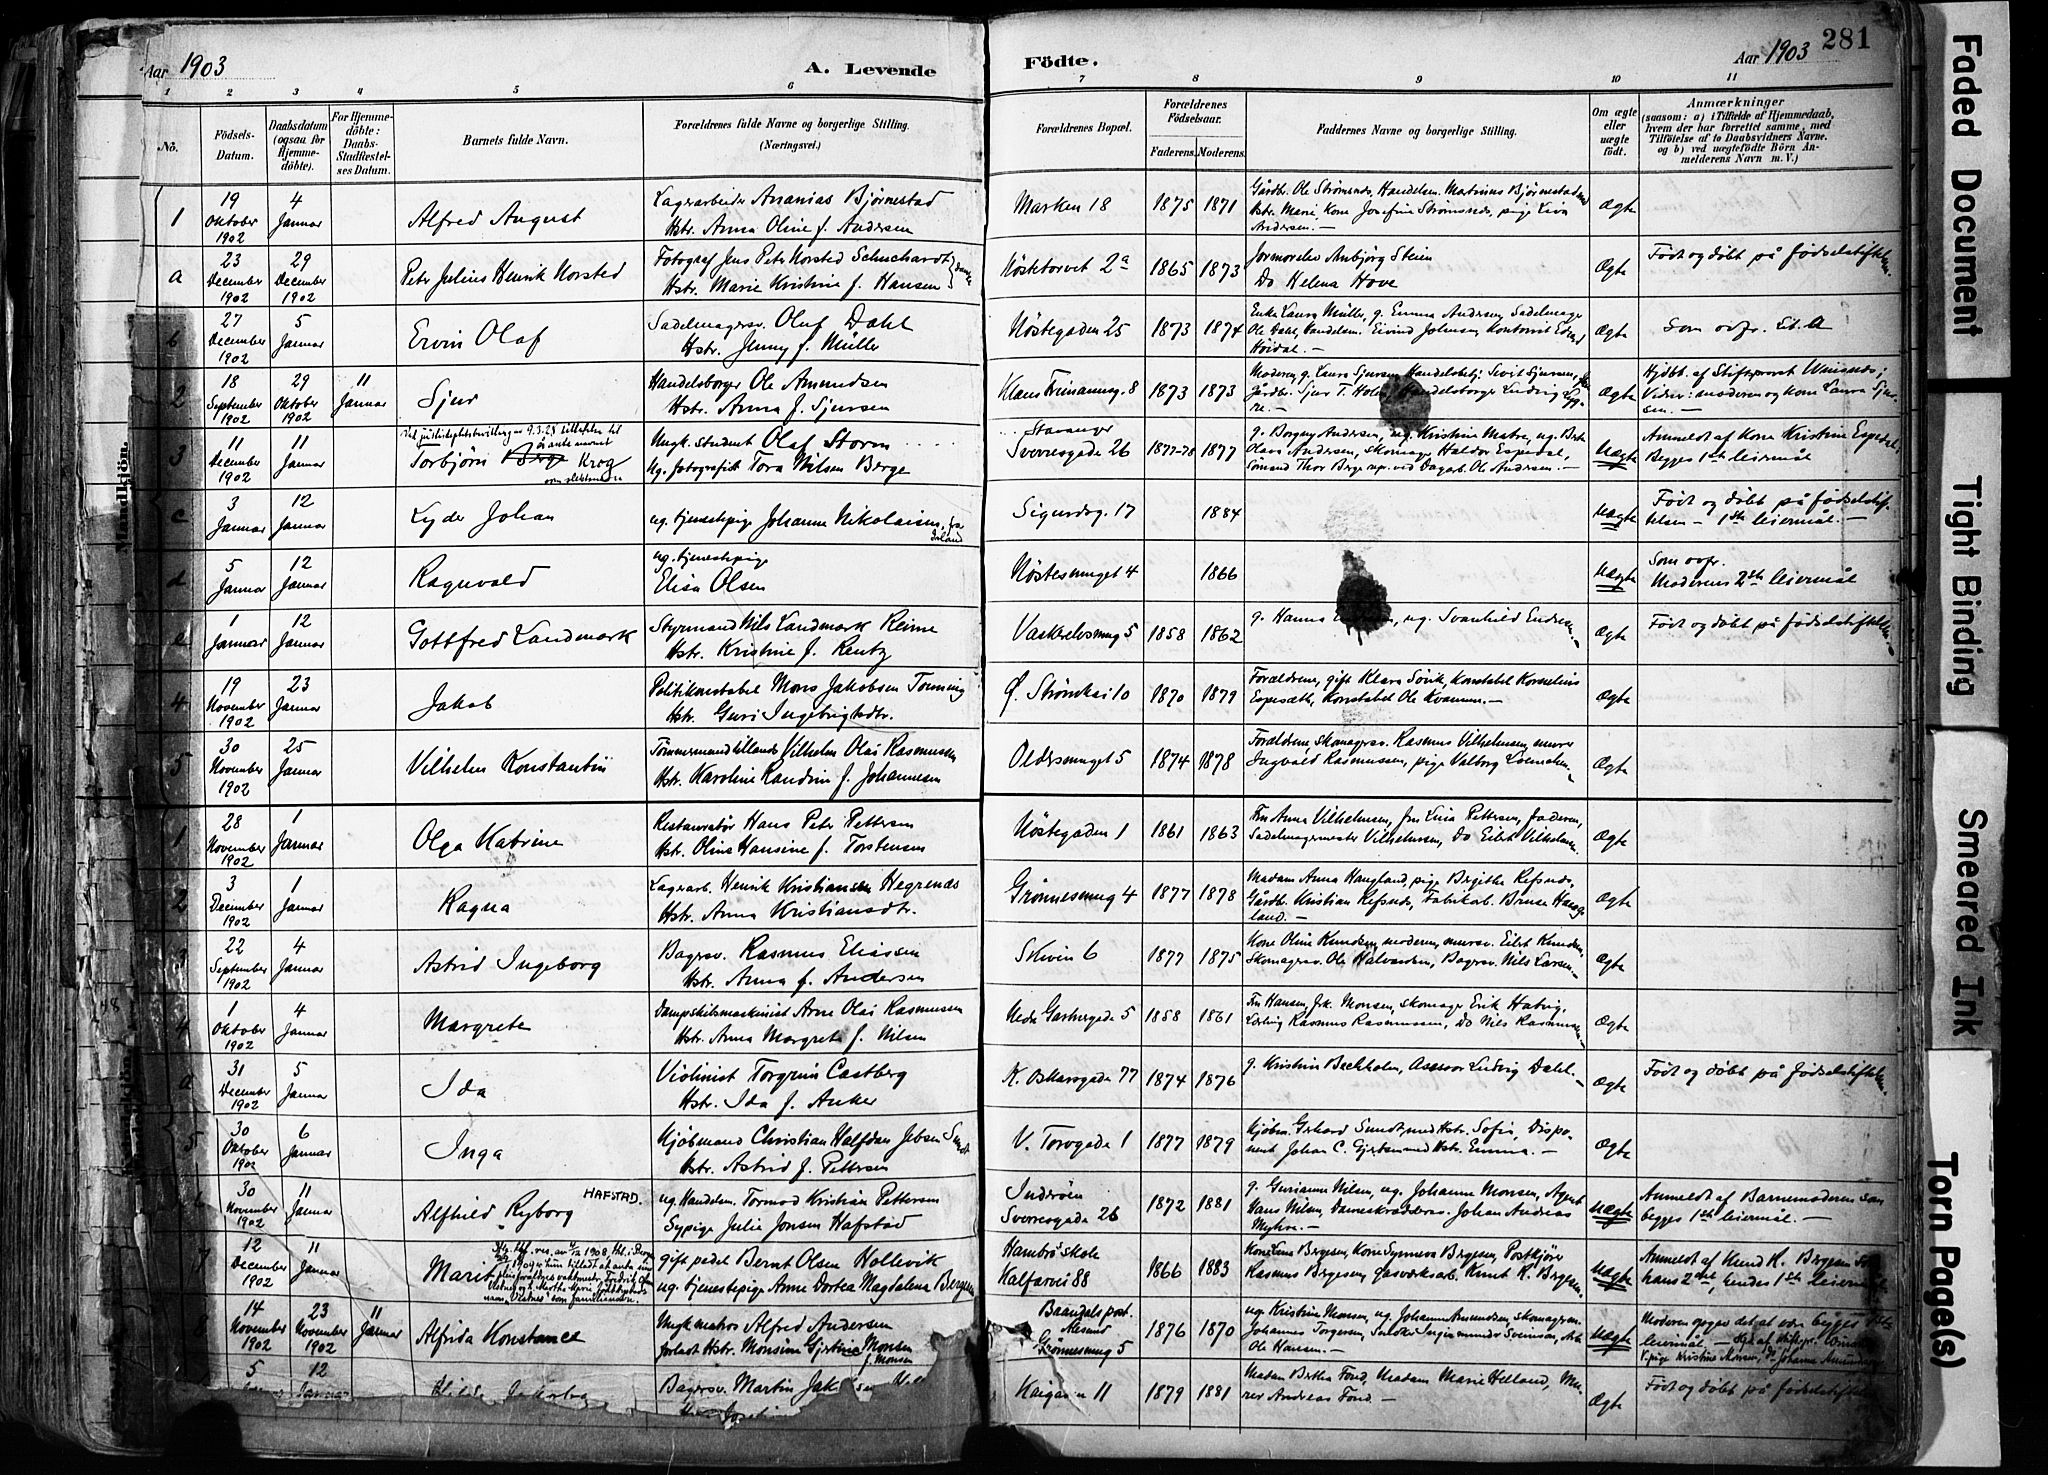 281
Aar 1903
A. Levende
Födte.
Aar 1903
1 2 3 4 5 6 7 8 9 10 11
No.
Födsels-
Datum.
Daabsdatum
(ogsaa for
Hjemme-
döbte).
For Hjemme-
döbte:
Daabs-
Stadfæstel-
ses Datum.
Barnets fulde Navn.
Forældrenes fulde Navne og borgerlige Stilling.
(Næringsvei.)
Forældrenes Bopæl.
Forældrenes
Födselsaar.
Faderens. Moderens.
Faddernes Navne og borgerlige Stilling.
Om ægte
eller
uægte
födt.
Anmærkninger
(saasom: a) i Tilfælde af Hjemmedaab,
hvem der har forrettet samme, med
Tilföielse af to Daabsvidners Navne.
og b) ved uægtefödte Börn An-
melderens Navn m. V.)
1
19 Oktober 1902
4 Januar
Alfred August
Lagerarbeider Ananias Bjørnestad
Hstr. Anna Oline f. Andersen
Marken 18
1875 1871
Gårdbr. Ole Strømsnes, Handelsm. Mathias Bjørnestad med
Hstr. Marie, Kone Josefine Strømsnes, pige Liva
Andersen. —
Ægte
a
23 December 1902
29 December 1902
Peter Julius Henrik Korsted
Fotograf Jens Peter Korsted Schuchardt
Hstr. Marie Kristine f. Hansen
Nöstetorvet 2a
1865 1873
Jormoreles Anbjørg Steien
Do Helena Hove
Ægte
Født og døbt på fødselsstiftelsen.
b
27 December 1902
5 Januar
Ervin Olaf
Sadelmagersv. Oluf Dahl
Hstr. Jenny f. Müller
Nöstegaden 25
1873 1874
Enke Laura Müller, g. Emma Andersen, Sadelmager
Ole Dahl, Handelsm. Eivind Johnsen, Kontorist
Høidal. —
Ægte
Som ovfr. Lit. a
2
18 September 1902
29 Oktober 1902
11 Januar
Sjur
Handelsborger Ole Amundsen
Hstr. Anna f. Sjursen
Klaus Friman­sg. 8
1873 1873
Moderen, g. Laura Sjursen, Handelsbetj. Sivit Sjursen,
Gårdbr. Sjur T. Holm, Handelsborger Ludvig
Ægte
Hjdbt. af Stiftsprovst
Vidner: moderen og kone Laura Sjur-
sen. —
3
11 December 1902
11 Januar
Torbjörn Berge Krog
Ungk. student Olaf Storm
Ug. fotografist. Tora Nilsen Berge
Stavanger
Sverresgade 26
1877-78 1877
g. Borgny Andersen, ug. Kristine Matre, ug. Berta
Olava Andersen, skomager Haldor Espedal,
Sömand Thor Berge rep. ved Dagarb. Ole Andersen. —
Uægte
Anmeldt af Kone Kristine Espedal.
Begges 1ste leiermål
c
3 Januar
12 Januar
Lyder Johan
ug. tjenestepige Johanne Nikolaisen,
Sigurdsg. 17
1884
Uægte
Født og døbt på fødselsstif-
telsen — 1ste leiermål. —
d
5 Januar
12 Januar
Ragnvald
ug. tjenestepige
Elisa Olsen
Nöstesmuget 4
1866
Uægte
Som ovfr.
Moderens 2det leiermål
e
1 Januar
12 Januar
Gottfred Landmark
Styrmand Nils Landmark Reime
Hstr. Kristine f. Rentz
Vaskrelvsmug 5
1858 1862
g. Hanna ug. Svanhild Endresen —
Ægte
Født og døbt på fødselsstiftelsen —
4
19 November 1902
23 Januar
Jakob
Politikonstabel Mons Jakobsen Tonning
Hstr. Guri Ingebrigtsdtr.
Ø. Strömkai 10
1870 1879
Forældrene, gift Klara Sörik, Konstabel Kornelius
Espesæth, Konstabel Ole Kvammen. —
Ægte
5
30 November 1902
25 Januar
Vilhelm Konstantin
Tömmermand Vilhelm Olai Rasmussen
Hstr. Karoline Randine f. Johannesen
Oldersmuget 5
1874 1878
Forældrene, skomagersv. Rasmus Vilhelmsen, murer
Ingvald Rasmussen, pige Valborg
Ægte
1
28 November 1902
1 Januar
Olga Katrine
Restauratör Hans Peter Pettersen
Hstr. Oline Hansine f. Torstensen
Nöstegaden 1
1861 1863
Fru Anna Vilhelmsen, frn Lina Pettersen, faderen,
Sadelmagermester Vilhelmsen, Do Eilert Vilhelmsen
Ægte
2
3 December 1902
1 Januar
Ragna
Lagerarb. Henrik Kristiansen Hegrenæs
Hstr. Anna Kristiansdtr.
Grönnesmug 4
1877 1878
Madam Anna Haugland, pige Brgithe Refsnes,
Gårdbr. Kristian Refsnes, Fabrikarb. Haug-
land. —
Ægte
3
22 September 1902
4 Januar
Astrid Ingeborg
Bagersv. Rasmus Eliassen
Hstr. Anna f. Andersen
Skiven 6
1877 1875
Kone Oline Knudsen, moderen, mursv. Eilert Knudsen,
Skomagersv. Ole Halvorsen, Bagersv. Nils Larsen. —
Ægte
4
1 Oktober 1902
4 Januar
Margrete
Dampskibsmaskinist Arne Olai Rasmussen
Hstr. Anna Margrete f. Nilsen
Nedre Garhergade 5
1858 1861
Fru Hansen, frk. Monsen, skomager Erik Hatvig,
Lærling Rasmus Rasmussen, Do Nils Rasmussen —
Ægte
a
31 December 1902
5 Januar
Ida
Violinist Torgrim Castberg
Hstr. Ida f. Anker
K. Oskarsgade 77
1874 1876
g. Kristine Beckholm, Assessor Ludvig Dahl. —
Ægte
Født og døbt på fødselsstiftelsen.
5
30 Oktober 1902
6 Januar
Inga
Kjöbmand Christian Halfdan Jebsen Sundt
Hstr. Astrid f. Pettersen
V. Torvgade 1
1877 1879
Kjöbm. Gerhard Sundt med Hstr. Sofie, Dispo-
nent Johan C. Gjertsen med Hstr. Emma. —
Ægte
6
30 November 1902
11 Januar
Alfhild Ryborg
HAFSTAD.
ug. Handelsm. Tormod Kristian Pettersen
Sypige Julie Jonsen Hafstad
Indröen
Sverresgade 26
1872 1881
g. Gurianne Nilsen, ug. Johanne Monsen, Agent
Hans Nilsen, Dameskrædders. Johan Andreas
Myhre. —
Uægte
Anmeldt af Barnemoderen
begges 1ste leiermål. —
7
12 December 1902
11 Januar
Marit
gift pedel Bernt Olsen Hollevik
ug. tjenestepige Anne Dortea Magdalena Bergesen
Hambros skole
Kalfarvei 88
1866 1883
Kone Lena Bergesen, Kone Synneva Bergesen, Postkjörer
Rasmus Bergesen, Gasværksarb. Knut K. Bergesen.
Uægte
Anmeldt af Knud K. Bergesen
hans 2det, hendes 1ste leiermål
8
14 November 1902
23 November 1902
11 Januar
Alfrida Konstance
Ungk matros Alfred Andersen
forladt Hstr. Monsine Gjertine Monsen
f. Monsen
Grönnesmug 5
1876 1870
ug. Kristine Monsen, ug. Johanne Amundsen, skomagersv.
Johannes Torgersen, Snedker Ingismundur Sveinsson, Arb.
Ole Hansen. —
Uægte
Moderen opgir det at være begges 1ste
leiermål. —
V. pige Kristine Monsen, Do Johanne Amundsen
5
12 Januar
Bagersv. Martin
Kaigaden 11
1879 1881
Madam Bertha Fond, Madam Marie Helland, Mu-
rer Andreas Fond. —
Ægte
Født og døbt på fødselsstiftelsen
Faded Document
Tight Binding
Smeared Ink
Torn Page(s)